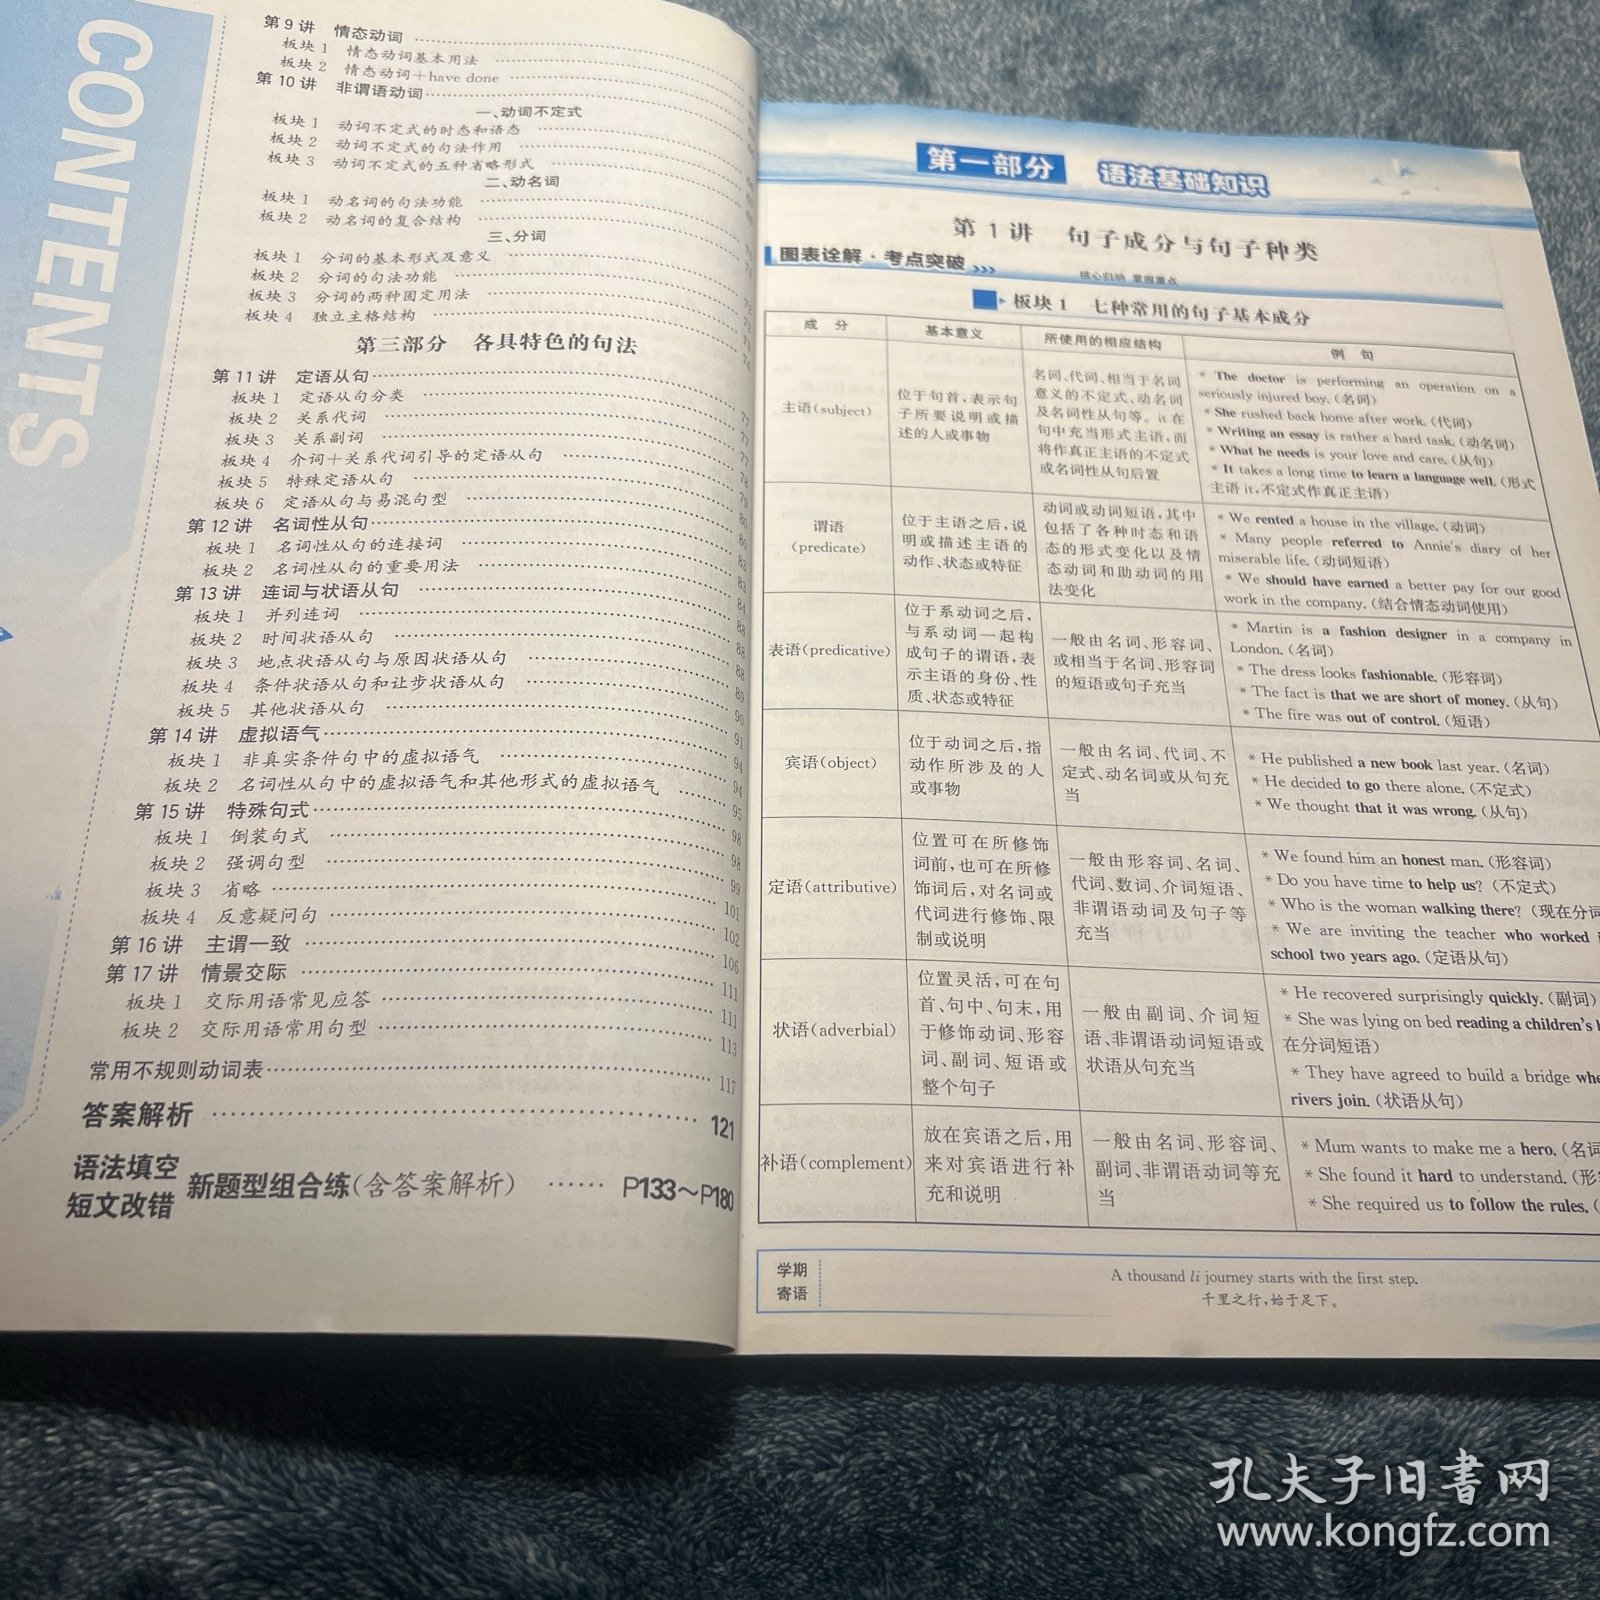 CONTENTS
第9讲 情态动词
板块1 情态动词基本用法
板块2 情态动词+have done
第10讲 非谓语动词
一、动词不定式
板块1 动词不定式的时态和语态
板块2 动词不定式的句法作用
板块3 动词不定式的五种省略形式
二、动名词
板块1 动名词的句法功能
板块2 动名词的复合结构
三、分词
板块1 分词的基本形式及意义
板块2 分词的句法功能
板块3 分词的两种固定用法
板块4 独立主格结构
第三部分 各具特色的句法
第11讲 定语从句
板块1 定语从句分类
板块2 关系代词
板块3 关系副词
板块4 介词+关系代词引导的定语从句
板块5 特殊定语从句
板块6 定语从句与易混句型
第12讲 名词性从句
板块1 名词性从句的连接词
板块2 名词性从句的重要用法
第13讲 连词与状语从句
板块1 并列连词
板块2 时间状语从句
板块3 地点状语从句与原因状语从句
板块4 条件状语从句和让步状语从句
板块5 其他状语从句
第14讲 虚拟语气
板块1 非真实条件句中的虚拟语气
板块2 名词性从句中的虚拟语气和其他形式的虚拟语气
第15讲 特殊句式
板块1 倒装句式 98
板块2 强调句型 99
板块3 省略 101
板块4 反意疑问句 102
第16讲 主谓一致 106
第17讲 情景交际 111
板块1 交际用语常见应答 111
板块2 交际用语常用句型 113
常用不规则动词表 117
答案解析 121
语法填空
短文改错
新题型组合练(含答案解析) P133~P180
第一部分 语法基础知识
第1讲 句子成分与句子种类
图表诠解·考点突破
核心归纳 掌握重点
板块1 七种常用的句子基本成分
成 分 基本意义 所使用的相应结构 例 句
主语(subject)
位于句首,表示句
子所要说明或描
述的人或事物
名词、代词、相当于名词
意义的不定式、动名词
及名词性从句等。it在
句中充当形式主语,而
将作真正主语的不定式
或名词性从句后置
* The doctor is performing an operation on a
seriously injured boy.(名词)
* She rushed back home after work.(代词)
* Writing an essay is rather a hard task.(动名词)
* What he needs is your love and care.(从句)
* It takes a long time to learn a language well.(形式
主语it,不定式作真正主语)
谓语
(predicate)
位于主语之后,说
明或描述主语的
动作、状态或特征
动词或动词短语,其中
包括了各种时态和语
态的形式变化以及情
态动词和助动词的用
法变化
* We rented a house in the village.(动词)
* Many people referred to Annie's diary of her
miserable life.(动词短语)
* We should have earned a better pay for our good
work in the company.(结合情态动词使用)
表语(predicative)
位于系动词之后,
与系动词一起构
成句子的谓语,表
示主语的身份、性
质、状态或特征
一般由名词、形容词、
或相当于名词、形容词
的短语或句子充当
* Martin is a fashion designer in a company in
London.(名词)
* The dress looks fashionable.(形容词)
* The fact is that we are short of money.(从句)
* The fire was out of control.(短语)
宾语(object)
位于动词之后,指
动作所涉及的人
或事物
一般由名词、代词、不
定式、动名词或从句充
当
* He published a new book last year.(名词)
* He decided to go there alone.(不定式)
* We thought that it was wrong.(从句)
定语(attributive)
位置可在所修饰
词前,也可在所修
饰词后,对名词或
代词进行修饰、限
制或说明
一般由形容词、名词、
代词、数词、介词短语、
非谓语动词及句子等
充当
* We found him an honest man.(形容词)
* Do you have time to help us?(不定式)
* Who is the woman walking there?(现在分词
* We are inviting the teacher who worked
school two years ago.(定语从句)
状语(adverbial)
位置灵活,可在句
首、句中、句末,用
于修饰动词、形容
词、副词、短语或
整个句子
一般由副词、介词短
语、非谓语动词短语或
状语从句充当
* He recovered surprisingly quickly.(副词)
* She was lying on bed reading a children's
在分词短语)
* They have agreed to build a bridge
rivers join.(状语从句)
补语(complement)
放在宾语之后,用
来对宾语进行补
充和说明
一般由名词、形容词、
副词、非谓语动词等充
当
* Mum wants to make me a hero.(名词
* She found it hard to understand.(形
* She required us to follow the rules.(
学期
寄语
A thousand li journey starts with the first step.
千里之行,始于足下。
孔夫子旧书网
www.kongfz.com